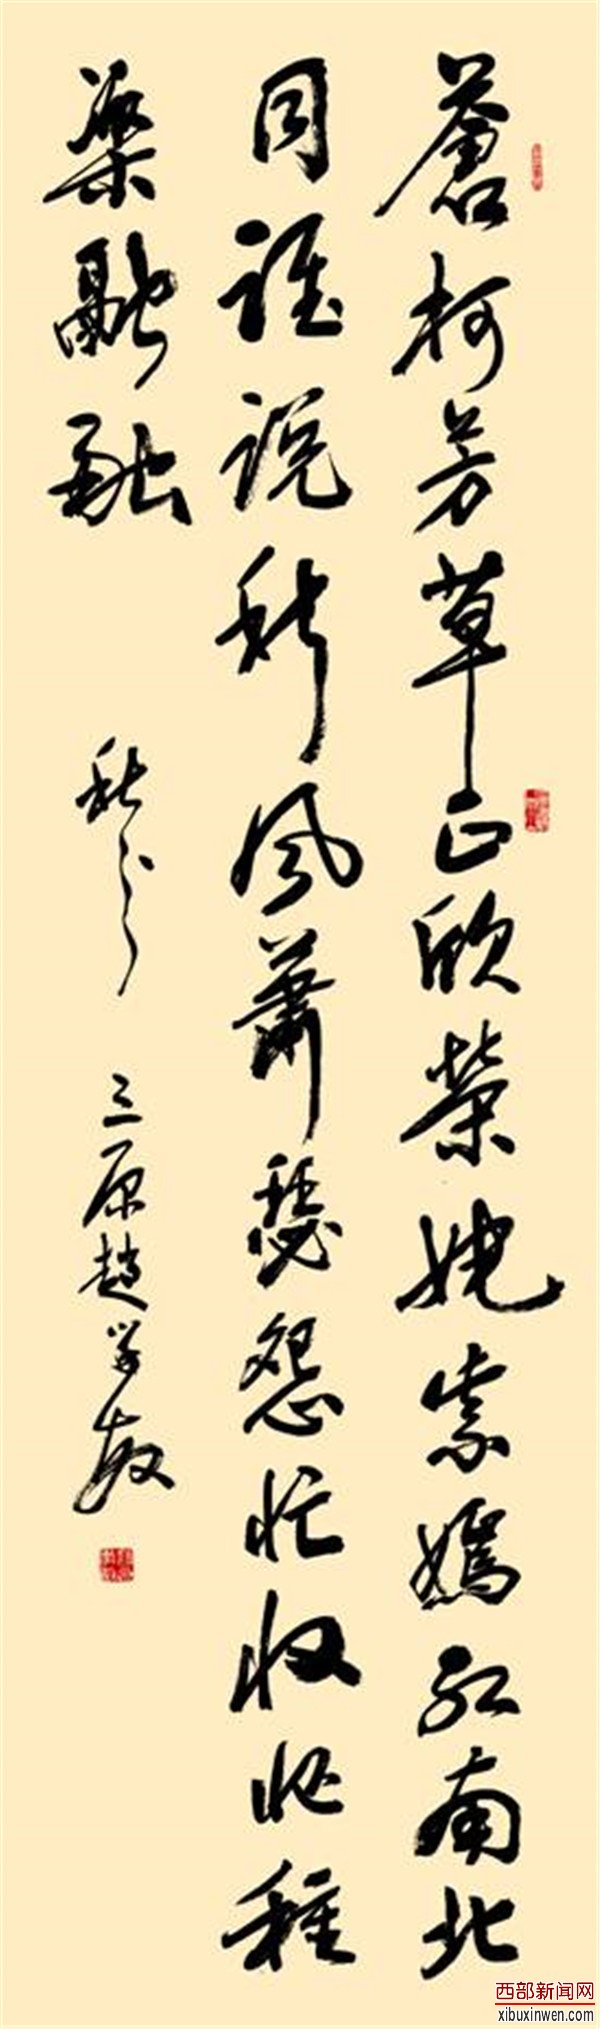 蒼柯芳草正欣榮姹紫嫣紅南北
同誰說秋風蕭瑟怨忙收忙種
樂融融
秋分
三原趙学敏
西部新闻网
xibuxinwen.com